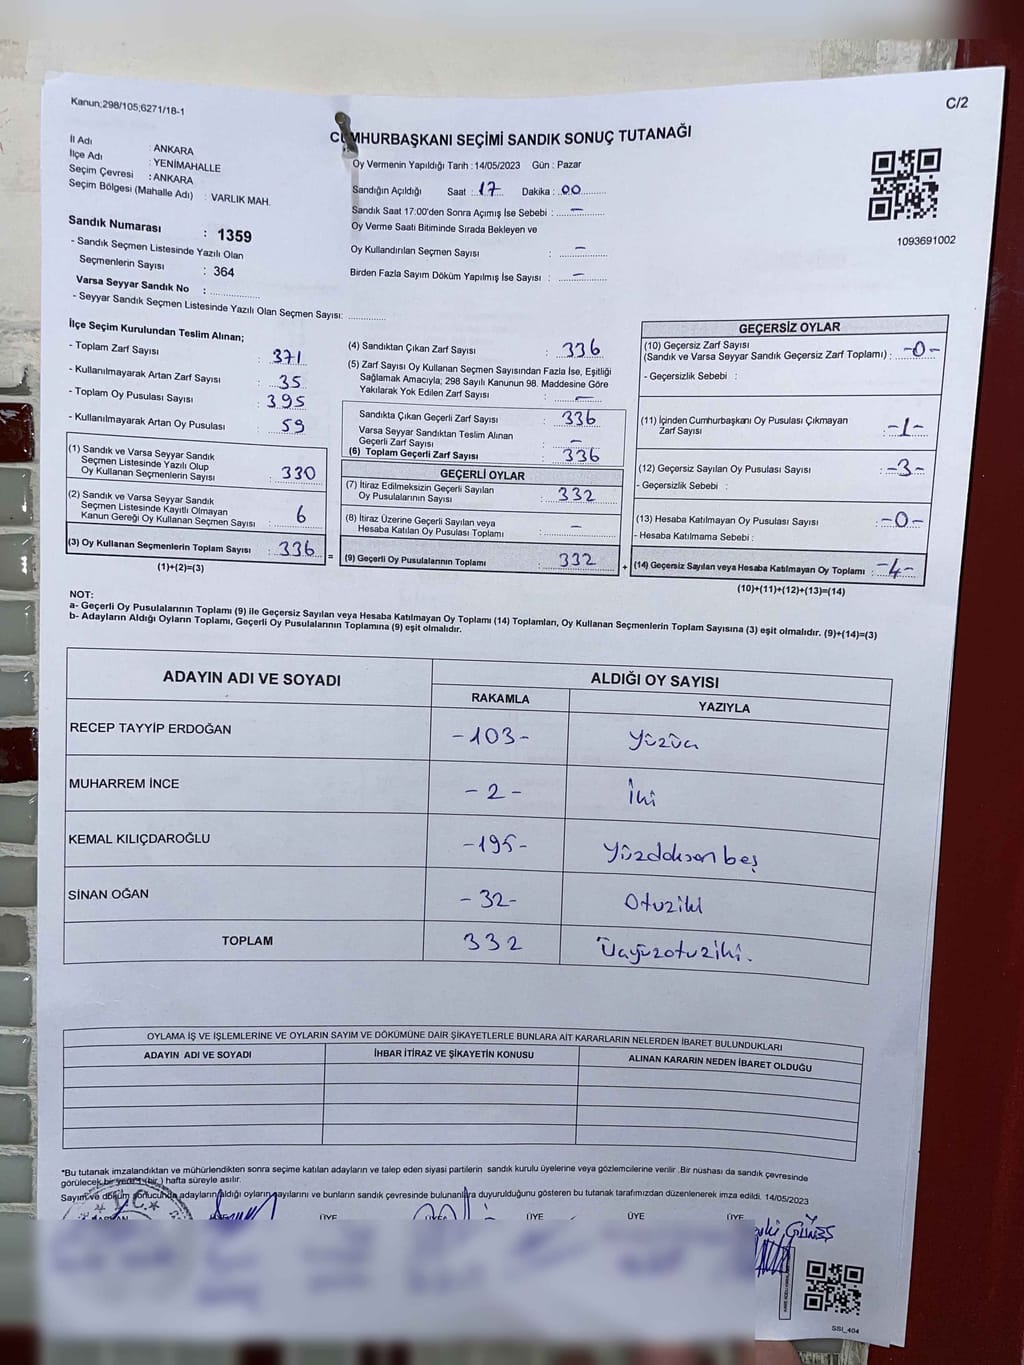 Kanun;298/105;6271/18-1
C/2
CUMHURBAŞKANI SEÇİMİ SANDIK SONUÇ TUTANAĞI
İl Adı : ANKARA
İlçe Adı : YENİMAHALLE
Seçim Çevresi : ANKARA
Seçim Bölgesi (Mahalle Adı) : VARLIK MAH.
Sandık Numarası : 1359
- Sandık Seçmen Listesinde Yazılı Olan
Seçmenlerin Sayısı : 364
Varsa Seyyar Sandık No :
- Seyyar Sandık Seçmen Listesinde Yazılı Olan Seçmen Sayısı:
Oy Vermenin Yapıldığı Tarih : 14/05/2023 Gün : Pazar
Sandığın Açıldığı Saat : 17 Dakika : 00
Sandık Saat 17:00'den Sonra Açımış İse Sebebi : —
Oy Verme Saati Bitiminde Sırada Bekleyen ve
Oy Kullandırılan Seçmen Sayısı : —
Birden Fazla Sayım Döküm Yapılmış İse Sayısı : —
1093691002
İlçe Seçim Kurulundan Teslim Alınan;
- Toplam Zarf Sayısı : 371
- Kullanılmayarak Artan Zarf Sayısı : 35
- Toplam Oy Pusulası Sayısı : 395
- Kullanılmayarak Artan Oy Pusulası : 59
(1) Sandık ve Varsa Seyyar Sandık
Seçmen Listesinde Yazılı Olup
Oy Kullanan Seçmenlerin Sayısı : 330
(2) Sandık ve Varsa Seyyar Sandık
Seçmen Listesinde Kayıtlı Olmayan
Kanun Gereği Oy Kullanan Seçmen Sayısı : 6
(3) Oy Kullanan Seçmenlerin Toplam Sayısı : 336
(1)+(2)=(3)
=
(4) Sandıktan Çıkan Zarf Sayısı : 336
(5) Zarf Sayısı Oy Kullanan Seçmen Sayısından Fazla İse, Eşitliği
Sağlamak Amacıyla; 298 Sayılı Kanunun 98. Maddesine Göre
Yakılarak Yok Edilen Zarf Sayısı : —
Sandıkta Çıkan Geçerli Zarf Sayısı : 336
Varsa Seyyar Sandıktan Teslim Alınan
Geçerli Zarf Sayısı : —
(6) Toplam Geçerli Zarf Sayısı : 336
GEÇERLİ OYLAR
(7) İtiraz Edilmeksizin Geçerli Sayılan
Oy Pusulalarının Sayısı : 332
(8) İtiraz Üzerine Geçerli Sayılan veya
Hesaba Katılan Oy Pusulası Toplamı : —
(9) Geçerli Oy Pusulalarının Toplamı : 332
+
GEÇERSİZ OYLAR
(10) Geçersiz Zarf Sayısı
(Sandık ve Varsa Seyyar Sandık Geçersiz Zarf Toplamı) : -0-
- Geçersizlik Sebebi :
(11) İçinden Cumhurbaşkanı Oy Pusulası Çıkmayan
Zarf Sayısı : -1-
(12) Geçersiz Sayılan Oy Pusulası Sayısı : -3-
- Geçersizlik Sebebi :
(13) Hesaba Katılmayan Oy Pusulası Sayısı : -0-
- Hesaba Katılmama Sebebi :
(14) Geçersiz Sayılan veya Hesaba Katılmayan Oy Toplamı : -4-
(10)+(11)+(12)+(13)=(14)
NOT:
a- Geçerli Oy Pusulalarının Toplamı (9) ile Geçersiz Sayılan veya Hesaba Katılmayan Oy Toplamı (14) Toplamları, Oy Kullanan Seçmenlerin Toplam Sayısına (3) eşit olmalıdır. (9)+(14)=(3)
b- Adayların Aldığı Oyların Toplamı, Geçerli Oy Pusulalarının Toplamına (9) eşit olmalıdır.
ADAYIN ADI VE SOYADI ALDIĞI OY SAYISI
RAKAMLA YAZIYLA
RECEP TAYYİP ERDOĞAN -103- Yüzüç
MUHARREM İNCE -2- İki
KEMAL KILIÇDAROĞLU -195- Yüzdoksan beş
SİNAN OĞAN -32- Otuziki
TOPLAM 332 Üçyüzotuziki.
OYLAMA İŞ VE İŞLEMLERİNE VE OYLARIN SAYIM VE DÖKÜMÜNE DAİR ŞİKAYETLERLE BUNLARA AİT KARARLARIN NELERDEN İBARET BULUNDUKLARI
ADAYIN ADI VE SOYADI İHBAR İTİRAZ VE ŞİKAYETİN KONUSU ALINAN KARARIN NEDEN İBARET OLDUĞU
*Bu tutanak imzalandıktan ve mühürlendikten sonra seçime katılan adayların ve talep eden siyasi partilerin sandık kurulu üyelerine veya gözlemcilerine verilir .Bir nüshası da sandık çevresinde
görülecek bir yere 1 (bir ) hafta süreyle asılır.
Sayım ve döküm sonucunda adayların aldığı oyların sayılarını ve bunların sandık çevresinde bulunanlara duyurulduğunu gösteren bu tutanak tarafımızdan düzenlenerek imza edildi. 14/05/2023
T.C.
ÜYE ÜYE ÜYE ÜYE
GÜNEŞ
SSI_404